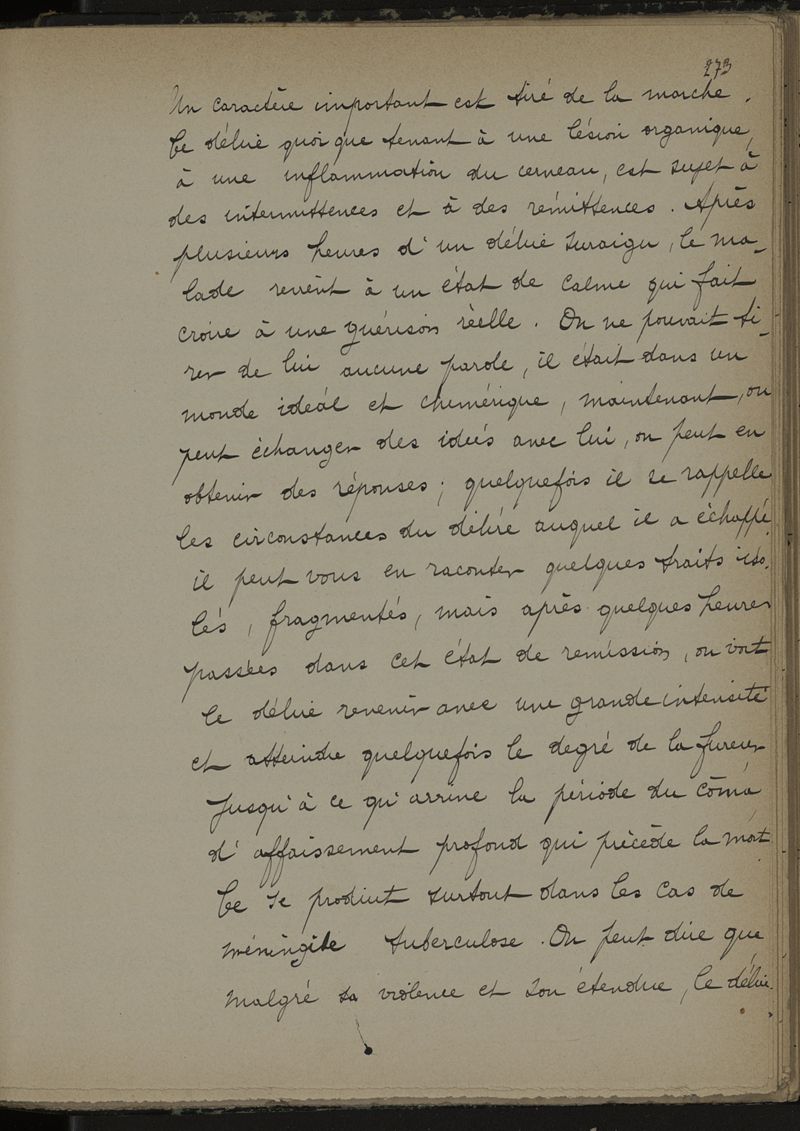 273
Un caractère important est tiré de la marche.
Le délire quoique tenant à une lésion organique,
à une inflammation du cerveau, est sujet à
des intermittences et à des rémittences. Après
plusieurs heures d'un délire suraigu, le ma-
lade revient à un état de calme qui fait
croire à une guérison réelle. On ne pouvait ti-
rer de lui aucune parole, il était dans un
monde idéal et chimérique, maintenant, on
peut échanger des idées avec lui, on peut en
obtenir des réponses; quelquefois il se rappelle
les circonstances du délire auquel il a échappé
il peut vous en raconter quelques traits iso-
lés, fragmentés, mais après quelques heures
passées dans cet état de remission, on voit
le délire revenir avec une grande intensité
et atteindre quelquefois le degré de la fureur
jusqu'à ce qu'arrive la période du côma
d'affaissement profond qui précède la mort
Ce se produit surtout dans les cas de
méningite tuberculose. On peut dire que
malgré sa violence et son étendue, le délire